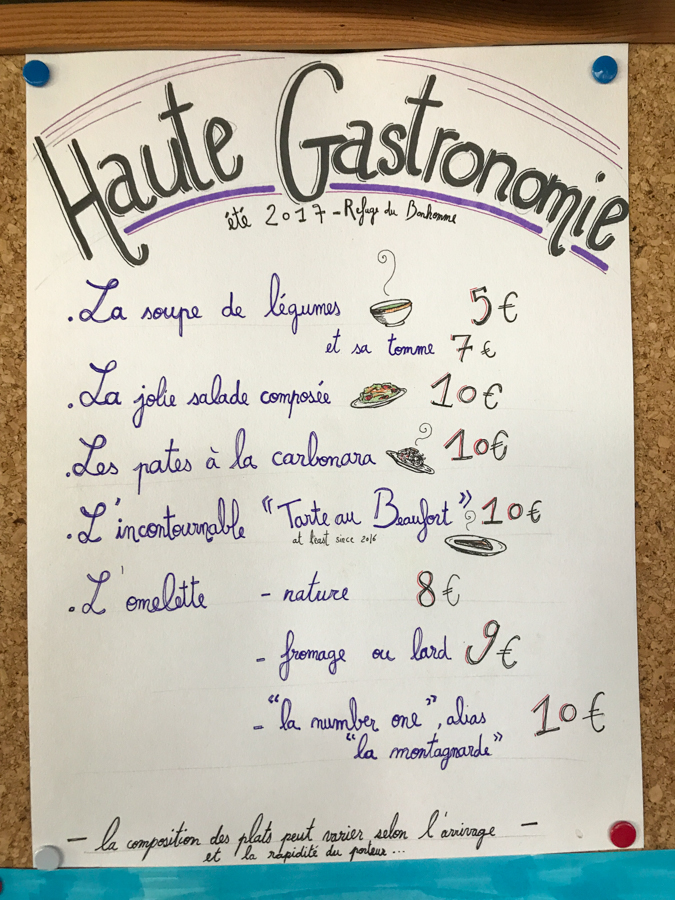 Haute Gastronomie
été 2017 - Refuge du Bonhomme
. La soupe de légumes 5€
et sa tomme 7€
. La jolie salade composée 10€
. Les pates à la carbonara 10€
. L'incontournable "Tarte au Beaufort" 10€
at least since 2016
. L'omelette - nature 8€
- fromage ou lard 9€
- "la number one", alias 10€
"la montagnarde"
— la composition des plats peut varier selon l'arrivage —
et la rapidité du porteur...